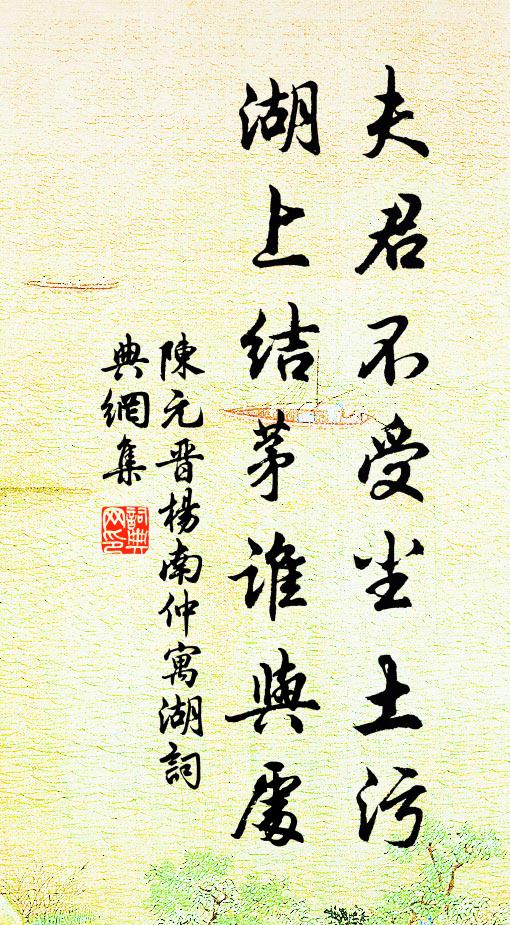 夫君不受尘土污
湖上结茅谁與處
陳元晋楊南仲寓湖詞
典網集
詞典网印